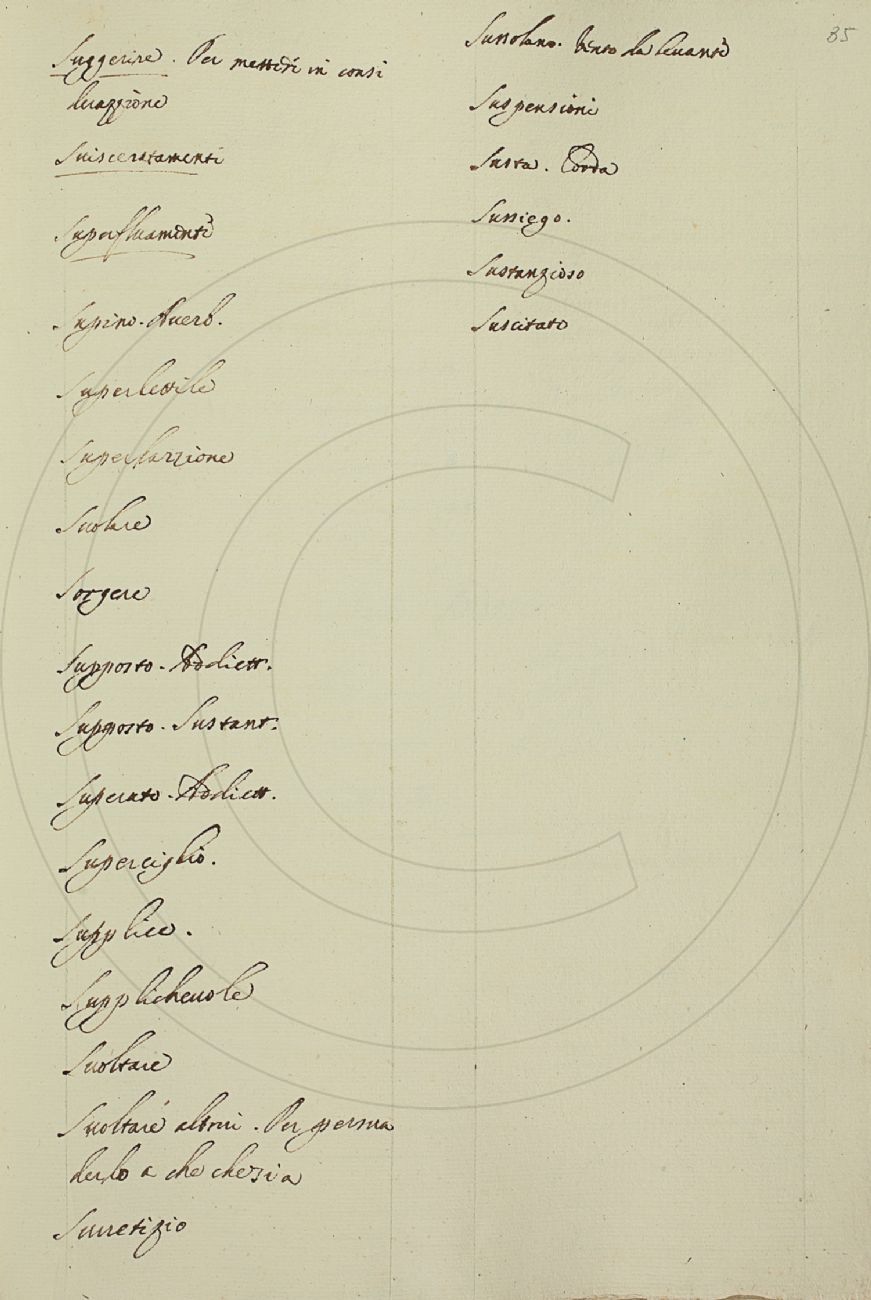 Suggerire. Per metteré in consi
leraz̃zione
Suisceratamenti
Superfluamenté
Supino. Auerb.
Superlettile
Superlazzione
Suolare
Sorgere
Supposto. Addiett.
Supposto. Sustant.
Superato. Addiett.
Superciglio.
Supplice.
Supplicheuole
Suoltare
Suoltare altrui. Per persua
derlo a che chesia
Surretizio
Sussolano. Vento da leuante
Suspensioni
Susta. Corda
Sussiego.
Sustanzioso
Suscitato
85